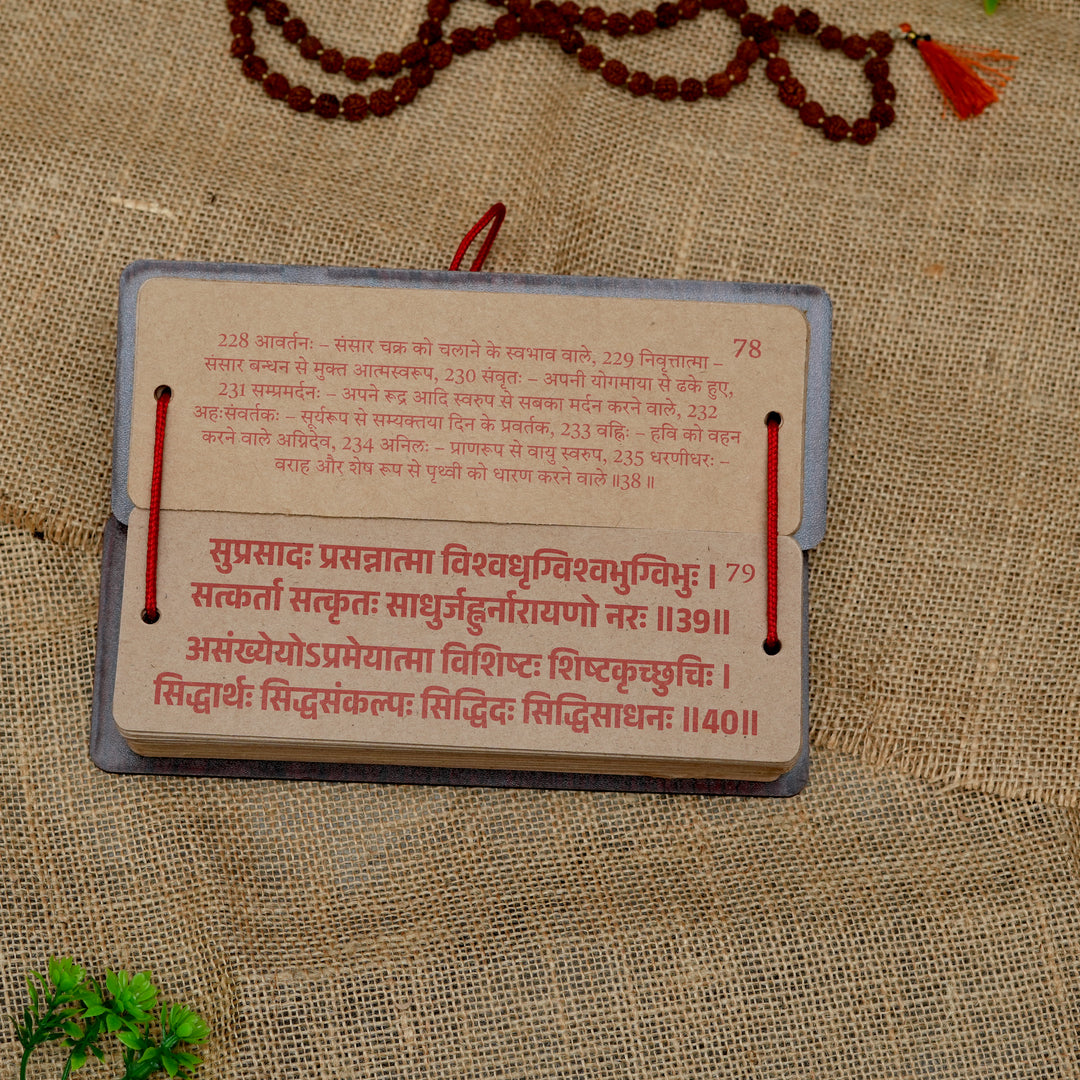 78
228 आवर्तनः – संसार चक्र को चलाने के स्वभाव वाले, 229 निवृत्तात्मा –
संसार बन्धन से मुक्त आत्मस्वरूप, 230 संवृतः – अपनी योगमाया से ढके हुए,
231 सम्प्रमर्दनः – अपने रूद्र आदि स्वरुप से सबका मर्दन करने वाले, 232
अहःसंवर्तकः – सूर्यरूप से सम्यक्तया दिन के प्रवर्तक, 233 वह्निः – हवि को वहन
करने वाले अग्निदेव, 234 अनिलः – प्राणरूप से वायु स्वरुप, 235 धरणीधरः –
वराह और शेष रूप से पृथ्वी को धारण करने वाले ॥38॥
सुप्रसादः प्रसन्नात्मा विश्वधृग्विश्वभुग्विभुः । 79
सत्कर्ता सत्कृतः साधुर्जह्नुर्नारायणो नरः ॥39॥
असंख्येयोऽप्रमेयात्मा विशिष्टः शिष्टकृच्छुचिः ।
सिद्धार्थः सिद्धसंकल्पः सिद्धिदः सिद्धिसाधनः ॥40॥